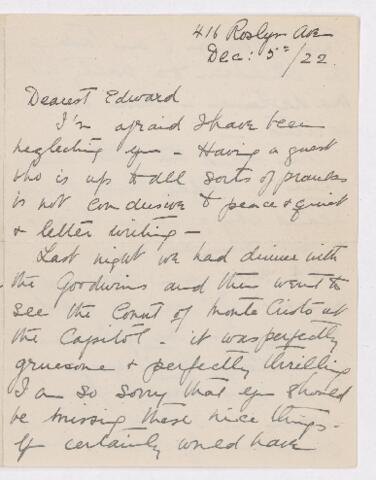 416 Roslyn Ave
Dec: 5th/22.
Dearest Edward
I'm afraid I have been
neglecting you – Having a guest
who is up to all sorts of pranks
is not conducive to peace & quiet
& letter writing –
Last night we had dinner with
the Goodwins and then went to
see the Count of Monte Cristo at
the Capitol. it was perfectly
gruesome & perfectly thrilling
I am so sorry that you should
be missing these nice things.
You certainly would have